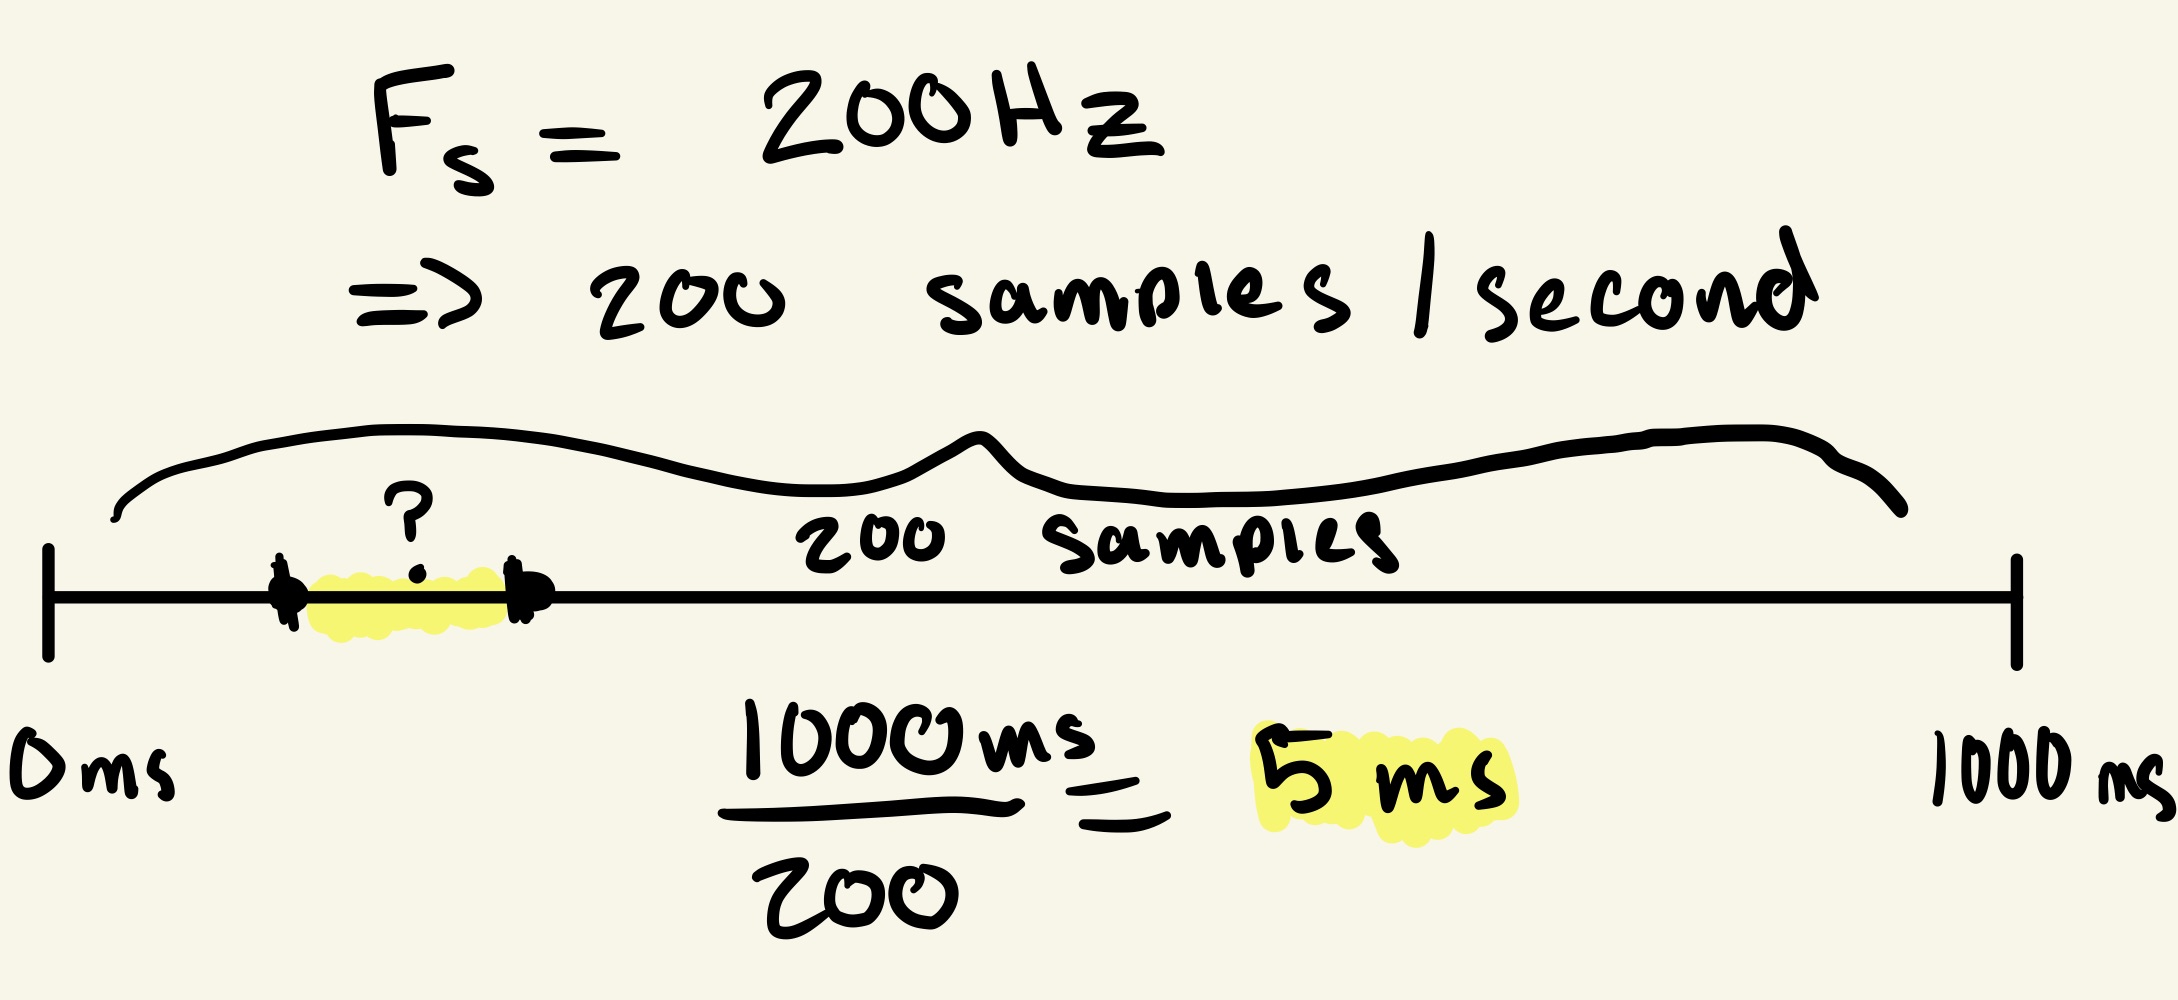 Fs = 200Hz
=> 200 samples / second
?
200 samples
0ms
1000ms
1000ms / 200 = 5 ms